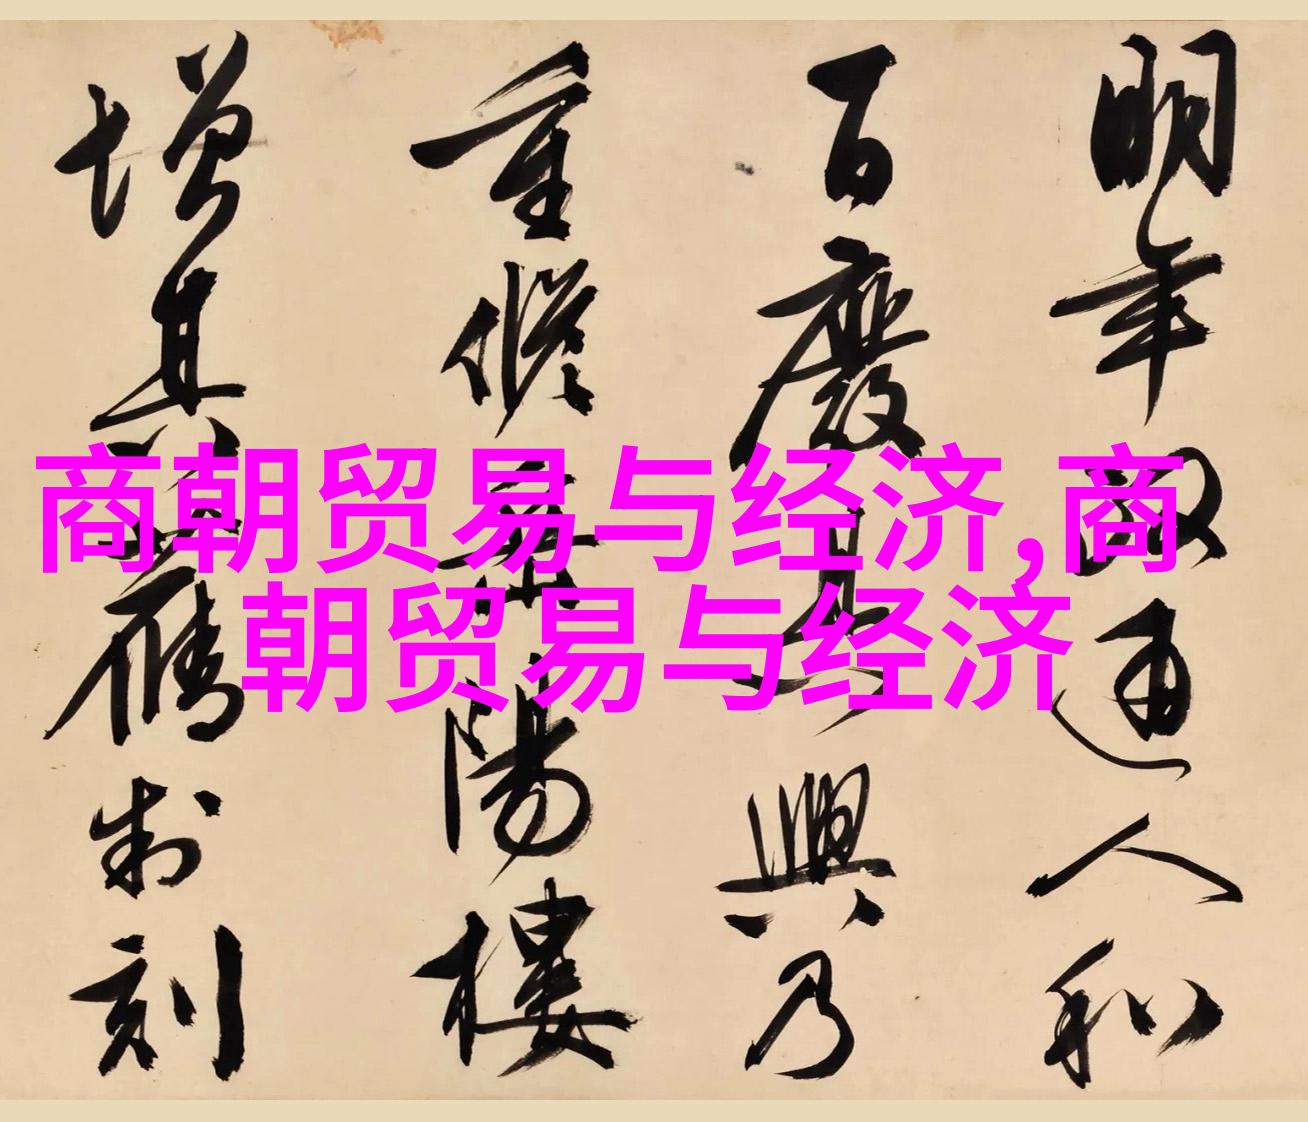 明年政通人和
百廢具興乃
重修岳陽樓
增其舊制刻
商朝贸易与经济,商
朝贸易与经济